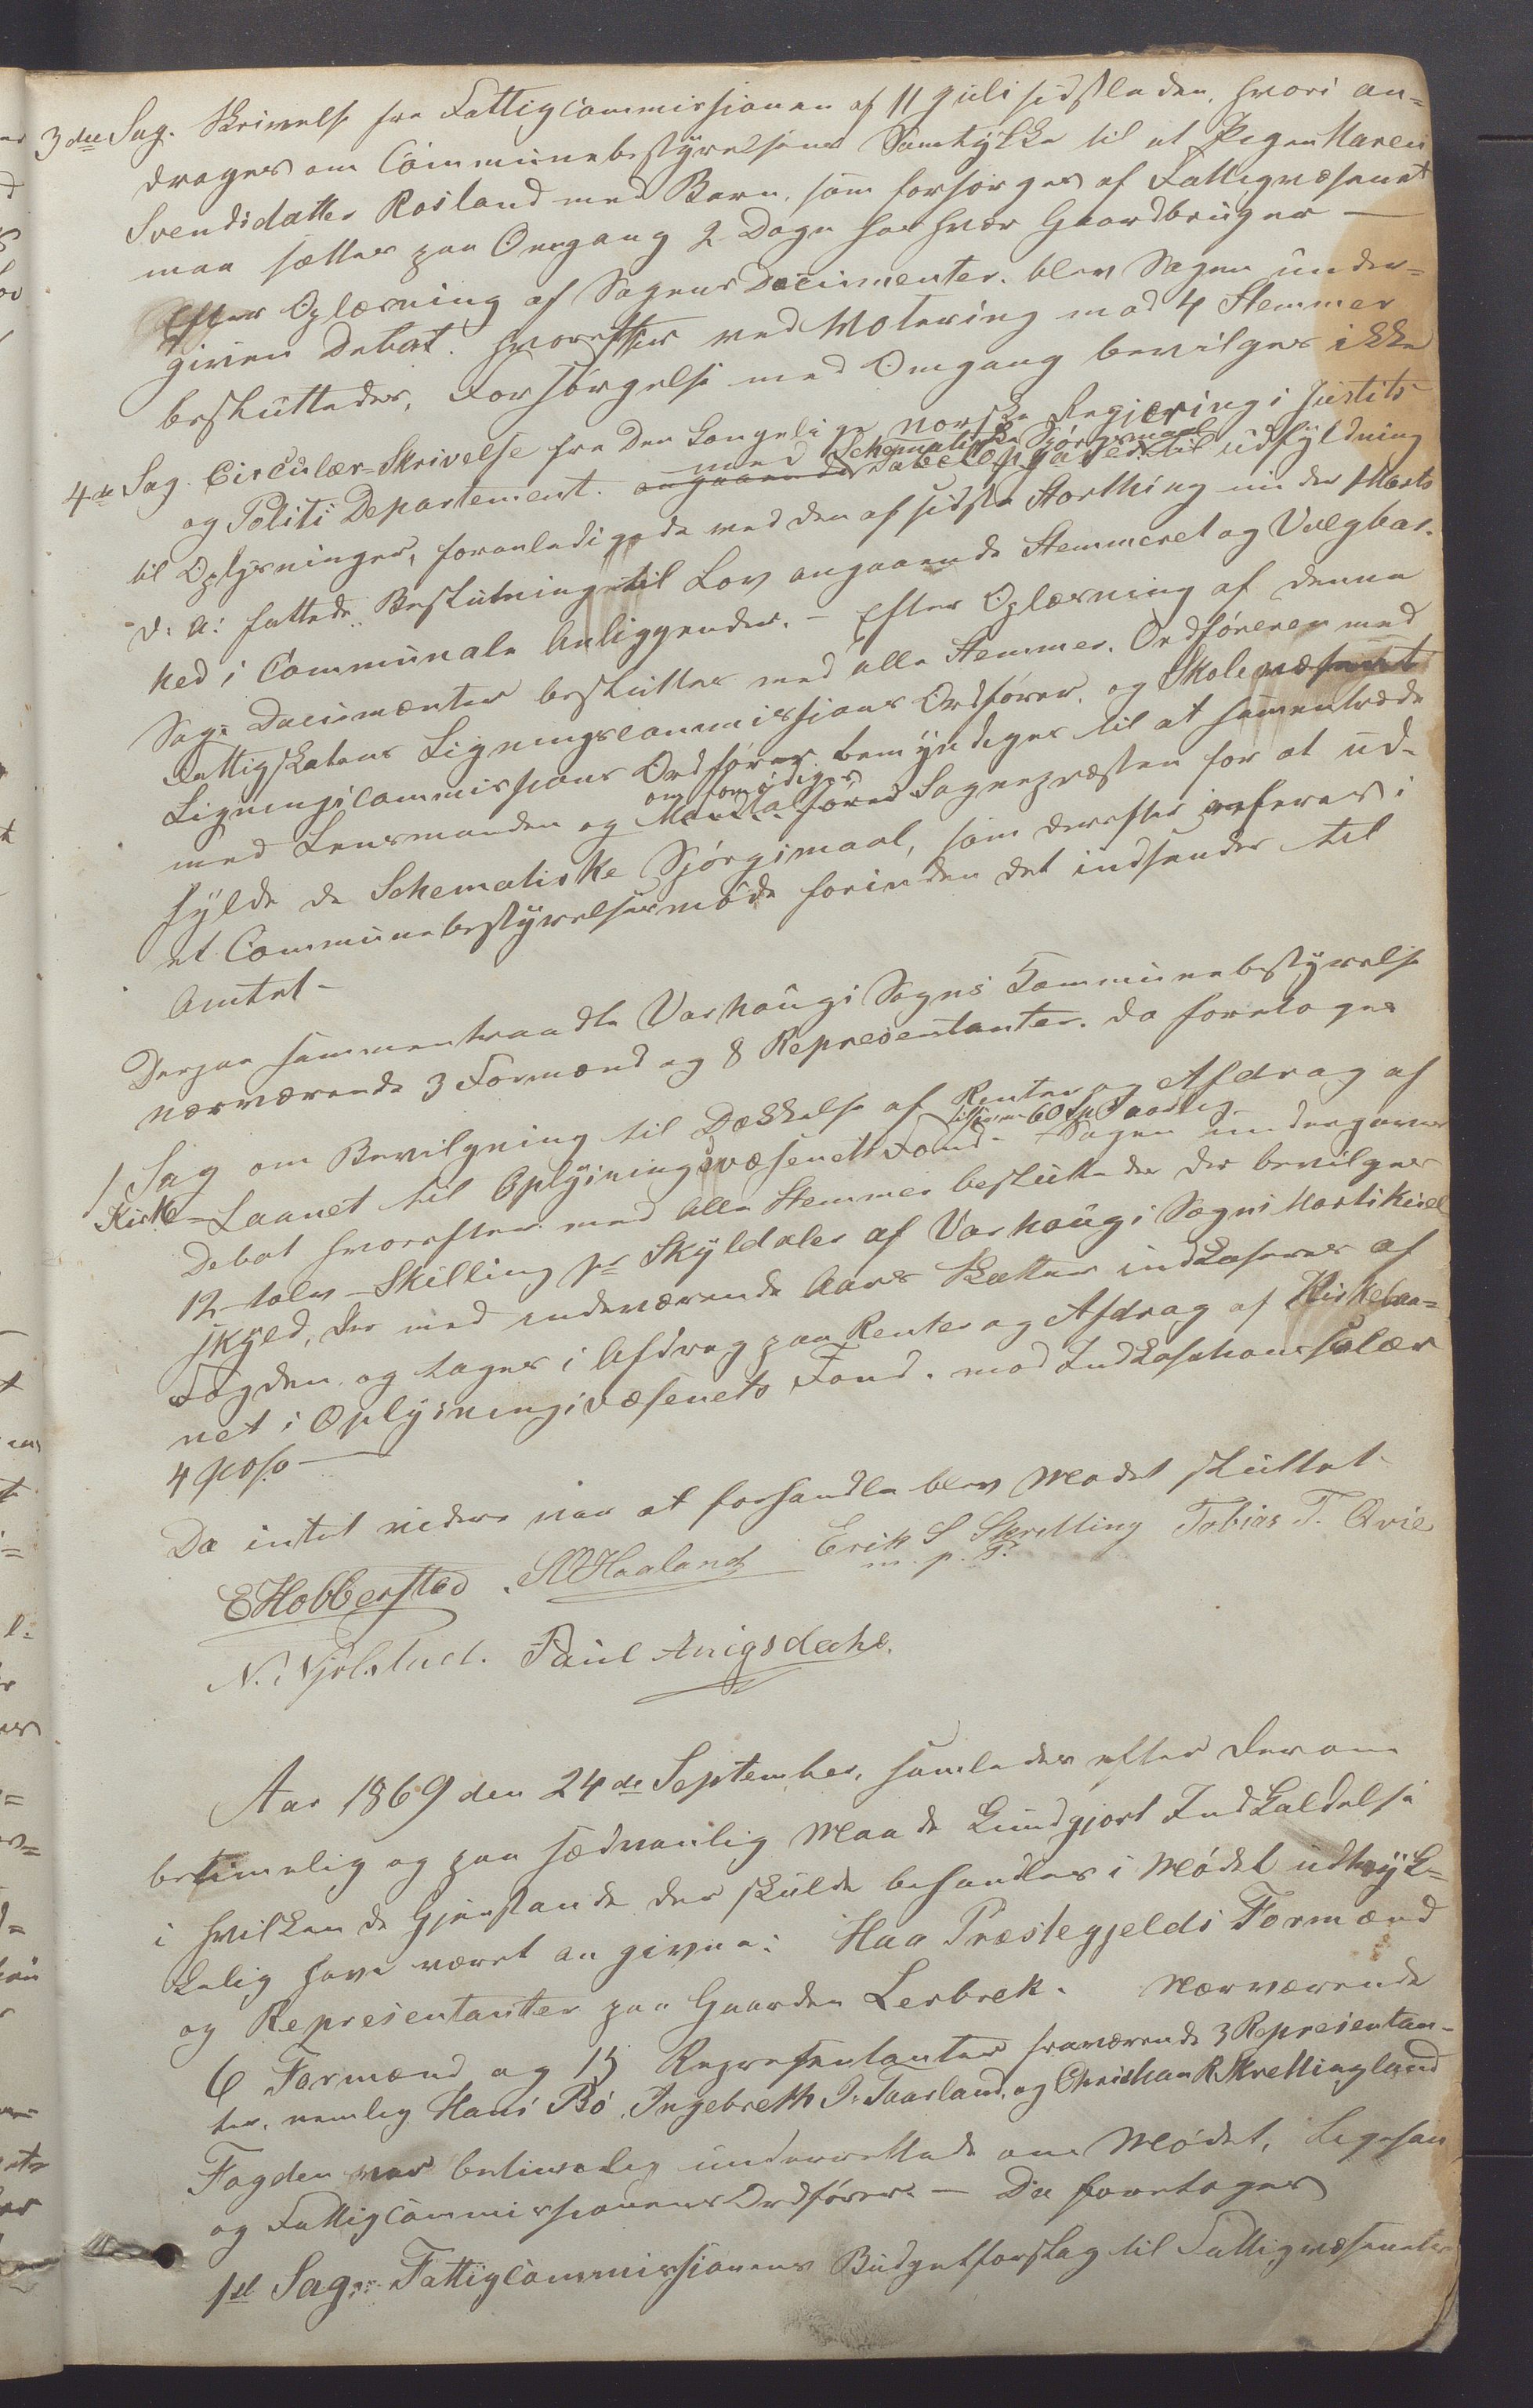 3die Sag. Skrivelse fra Fattigcommissionen af 11 Juli sidstleden, hvori an-
drages om Communebestyrelsens Samtykke til at Pigen Maren
Svendsdatter Rosland med Barn, som forsørges af Fattigvæsenet
maa sættes paa Omgang 2 Dage hos hver Gaardbruger —
Efter Oplæsning af Sagens Documenter. blev Sagen under-
given Debat. hvorefter ved Votering mod 4 Stemmer
besluttedes, Forsørgelse med Omgang bevilges ikke
4de Sag. Circulær-Skrivelse fra den Kongelige norske Regjering i Justits
og Politi Departement. angaaende med Schematiske Spørgsmaal til udfyldning
til Oplysninger, foranledigede ved den af sidste Storthing under Marts
d: A: fattede Beslutning til Lov angaaende Stemmeret og Valgbar-
hed i Communale Anliggender. – Efter Oplæsning af denne
Sags Documenter besluttes med alle Stemmer. Ordføreren med
Fattigskatens Ligningscommissions Ordfører, og Skolevæsenet
Ligningscommissions Ordfører bemyndiges til at sammentræde
med Lensmanden og om fornødiges Sognepræsten for at ud-
fylde de Schematiske Spørgsmaal, som derefter refereres i
et Communebestyrelsesmøde forinden det indsendes til
Amtet –
Derpaa sammentraadte Varhaugs Sogns Communebestyrelse
nærværende 3 Formænd og 8 Representanter. da foretoges
1 Sag om Bevilgning til Dækkelse af Renter og Afdrag af
Kirke-Laanet til Oplysningsvæsenets Fond – tilsammen 60 Spd aarlig – Sagen undergaves
Debat hvorefter med Alle Stemmer besluttedes der bevilges
12 – tolv – Skilling pr Skyldaler af Varhaugs Sogns Matrikul
skyld, der med indeværende Aars Skatter indkasseres af
Fogden og tages i Afdrag paa Renter og Afdrag af Kirkelaa-
net i Oplysningsvæsenets Fond. mod Indkassationssalær
4 pCto —
Da intet videre var at forhandle blev Mødet sluttet
E Hobberstad. Haaland Erik S Skretting Tobias T. Qvie
m. p. P.
N. Njølstad. Paul Anigsdahl.
Aar 1869 den 24de September, samledes efter derom
betimelig og paa sædvanlig Maade kundgjort Indkaldelse
i hvilken de Gjenstande der skulde behandles i Mødet udtryk-
kelig have været angivne: Haa Præstegjelds Formænd
og Representanter paa Gaarden Lerbrek. Nærværende
6 Formænd og 15 Representanter fraværende 3 Representan-
ter. nemlig Hans Bø, Ingebreth I. Taarland, og Christian R. Skrettingland
Fogden var betimelig underrettet om Mødet, ligesaa
og Fattigcommissionens Ordfører. — Da foretoges
1st Sag: Fattigcommissionens Budgetforslag til Fattigvæsenets